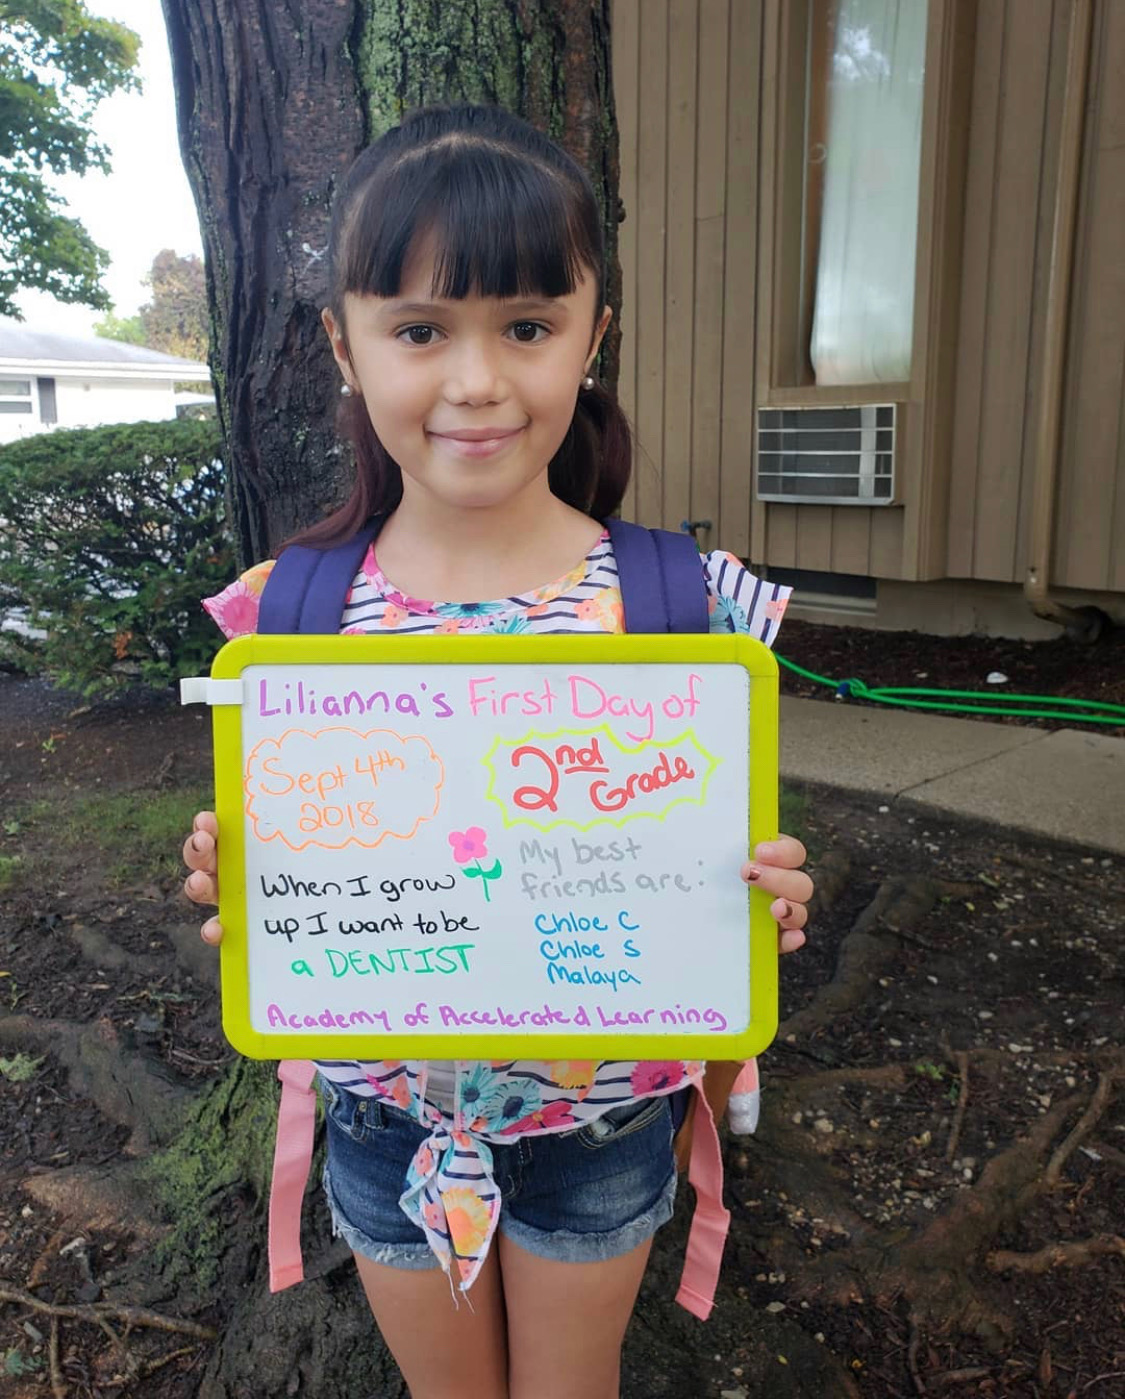 Lilianna's First Day of
Sept 4th
2018
2nd
Grade
When I grow
up I want to be
a DENTIST
My best
friends are:
Chloe C
Chloe S
Malaya
Academy of Accelerated Learning